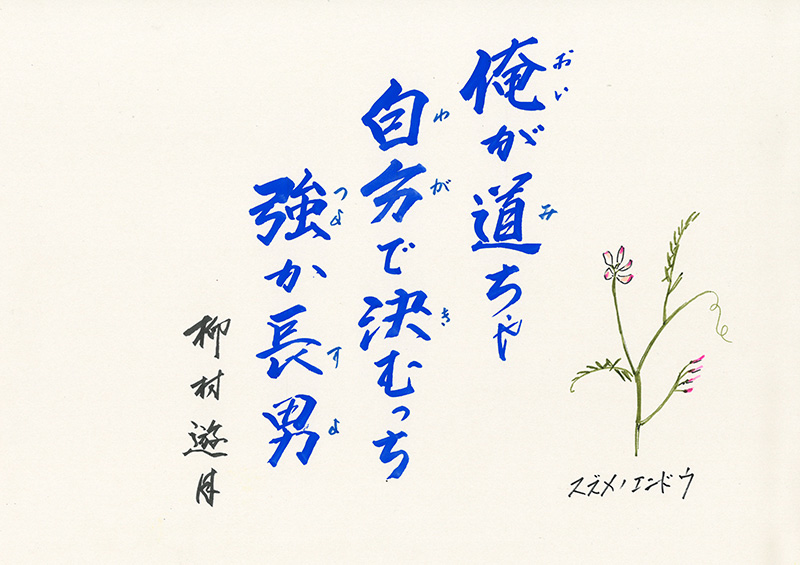 俺が道ちゃ
おい み
自分で決むっち
わが き
強か長男
つよ すよ
柳村遊月
スズメノエンドウ